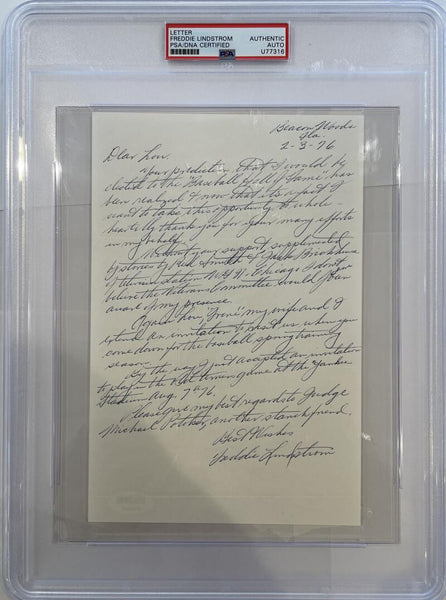 LETTER
FREDDIE LINDSTROM
PSA/DNA CERTIFIED
AUTHENTIC
AUTO
U77316
PSA
Beacon Woods
Fla.
2-3-76
Dear Lou.
Your prediction that I would be
elected to the "Baseball Hall of Fame" has
been realized & now that its a fact I
want to take this opportunity to whole-
heartedly thank you for your many efforts
in my behalf.
Without your support, supplemented
by stories by Red Smith & Jack Brickhouse
of television station W.G.N. Chicago I don't
believe the Veterans Committee would have been
aware of my presence.
Again Lou, "Irene" my wife and I
extend an invitation to visit us when you
come down for the baseball spring training
season.
By the way I just accepted an invitation
to play in the Old timers game at the Yankee
Stadium Aug. 7th 76.
Please give my best regards to Judge
Michael another stanch friend.
Best Wishes
Freddie Lindstrom